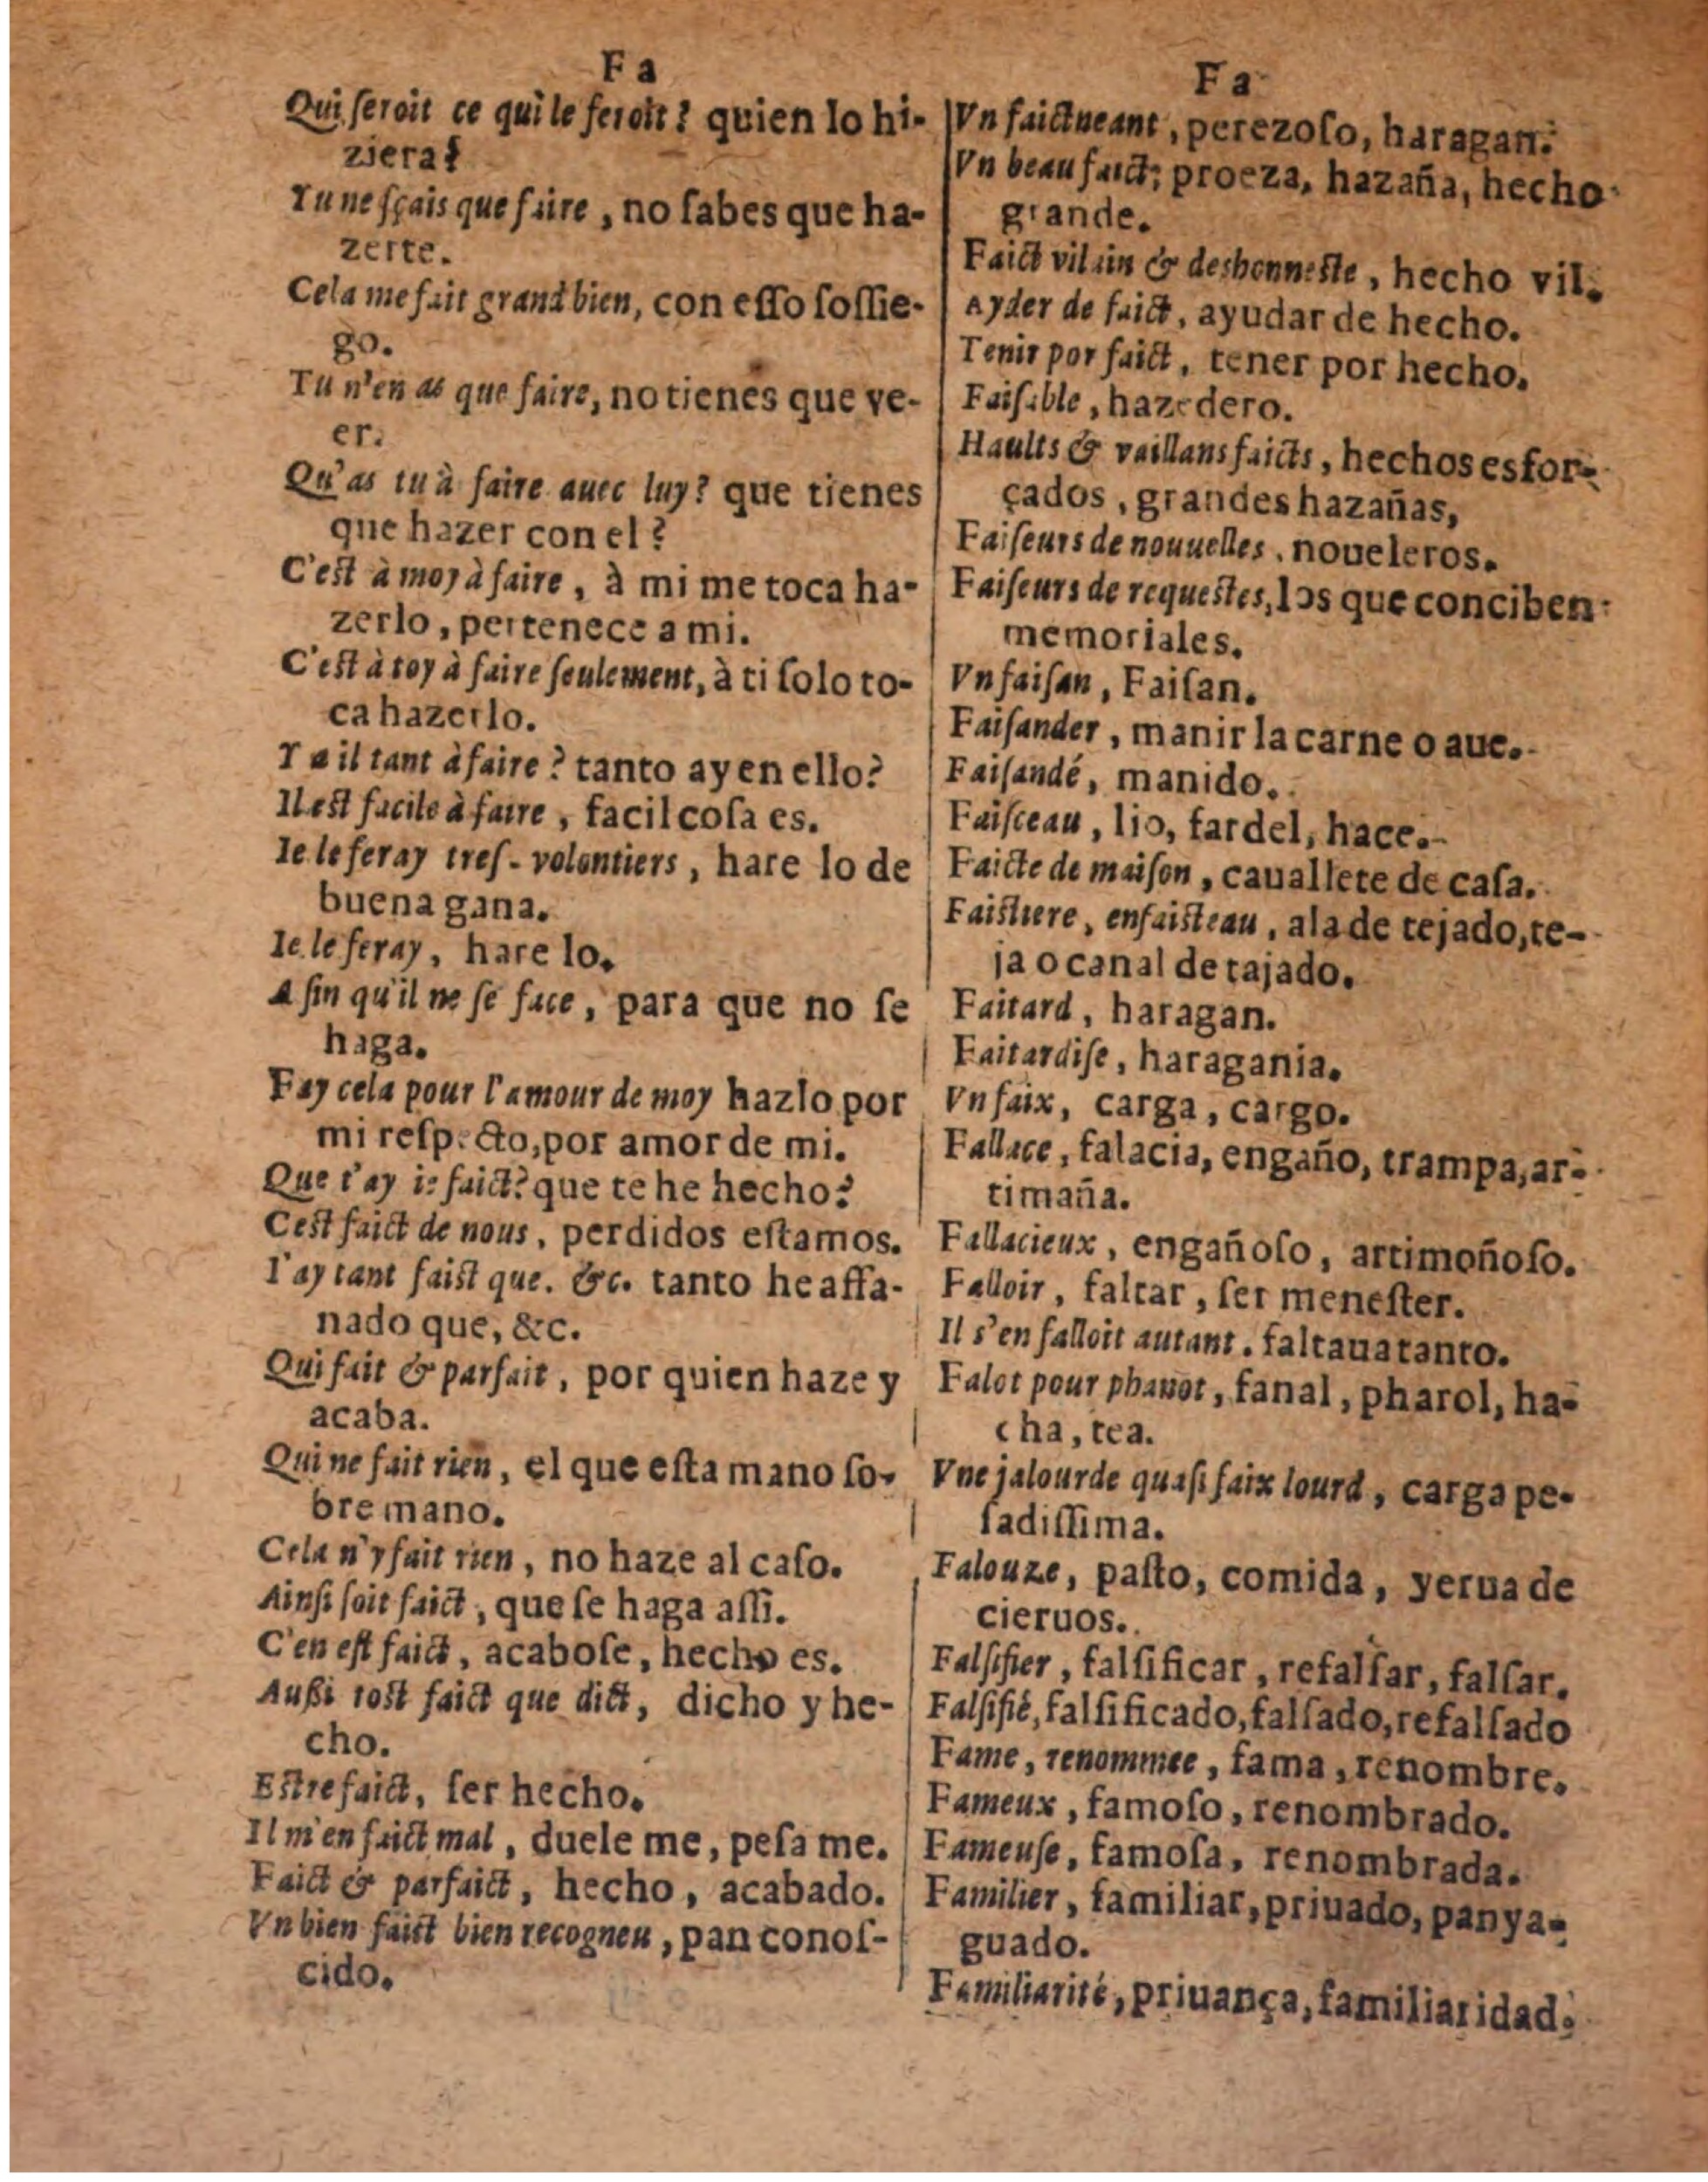 Fa
Qui ſeroit ce qui le feroit ? quien lo hi-
ziera?
Tu ne ſçais que faire , no ſabes que ha-
zerte.
Cela me fait grand bien, con eſſo ſoſſie-
go.
Tu n'en as que faire, no tienes que ve-
er.
Qu'as tu à faire auec luy? que tienes
que hazer con el ?
C'eſt à moy à faire , à mi me toca ha-
zerlo , pertenece a mi.
C'eſt à toy à faire ſeulement, à ti ſolo to-
ca hazerlo.
Y a il tant à faire ? tanto ay en ello?
Il eſt facile à faire , facil coſa es.
Ie le feray treſ-volontiers , hare lo de
buena gana.
Ie le feray , hare lo.
A fin qu'il ne ſe face , para que no ſe
haga.
Fay cela pour l'amour de moy hazlo por
mi reſpecto,por amor de mi.
Que t'ay ie faict? que te he hecho?
Ceſt faict de nous , perdidos eſtamos.
I'ay tant faiſt que. &c. tanto he affa-
nado que, &c.
Qui fait & parfait , por quien haze y
acaba.
Qui ne fait rien , el que eſta mano ſo-
bre mano.
Cela n'y fait rien , no haze al caſo.
Ainſi ſoit faict , que ſe haga aſſi.
C'en eſt faict , acaboſe , hecho es.
Außi toſt faict que dict , dicho y he-
cho.
Eſtre faict, ſer hecho.
Il m'en faict mal , duele me , peſa me.
Faict & parfaict , hecho , acabado.
Vn bien faict bien recogneu , pan conoſ-
cido.
Fa
Vn faictneant , perezoſo, haragan.
Vn beau faict; proeza, hazaña, hecho
grande.
Faict vilain & deshonneſte , hecho vil.
Ayder de faict , ayudar de hecho.
Tenir por faict , tener por hecho.
Faiſable , hazedero.
Haults & vaillans faicts , hechos esfor-
çados , grandes hazañas,
Faiſeurs de nouuelles , noueleros.
Faiſeurs de requeſtes, los que conciben
memoriales.
Vn faiſan , Faiſan.
Faiſander , manir la carne o aue.
Faiſandé , manido.
Faiſceau , lio, fardel, hace.
Faicte de maiſon , cauallete de caſa.
Faiſtiere , enfaiſteau , ala de tejado,te-
ja o canal de tajado.
Faitard , haragan.
Faitardiſe , haragania.
Vn faix , carga , cargo.
Fallace , falacia, engaño, trampa, ar-
timaña.
Fallacieux , engañoſo , artimoñoſo.
Falloir , faltar , ſer meneſter.
Il s'en falloit autant . faltaua tanto.
Falot pour phanot , fanal , pharol, ha-
cha , tea.
Vne jalourde quaſi faix lourd , carga pe-
ſadiſſima.
Falouze , paſto, comida , yerua de
cieruos.
Falſifier , falſificar , refalſar, falſar.
Falſifié, falſificado, falſado, refalſado
Fame , renommee , fama , renombre.
Fameux , famoſo , renombrado.
Fameuſe , famoſa , renombrada.
Familier , familiar, priuado, panya-
guado.
Familiarité , priuança, familiaridad.